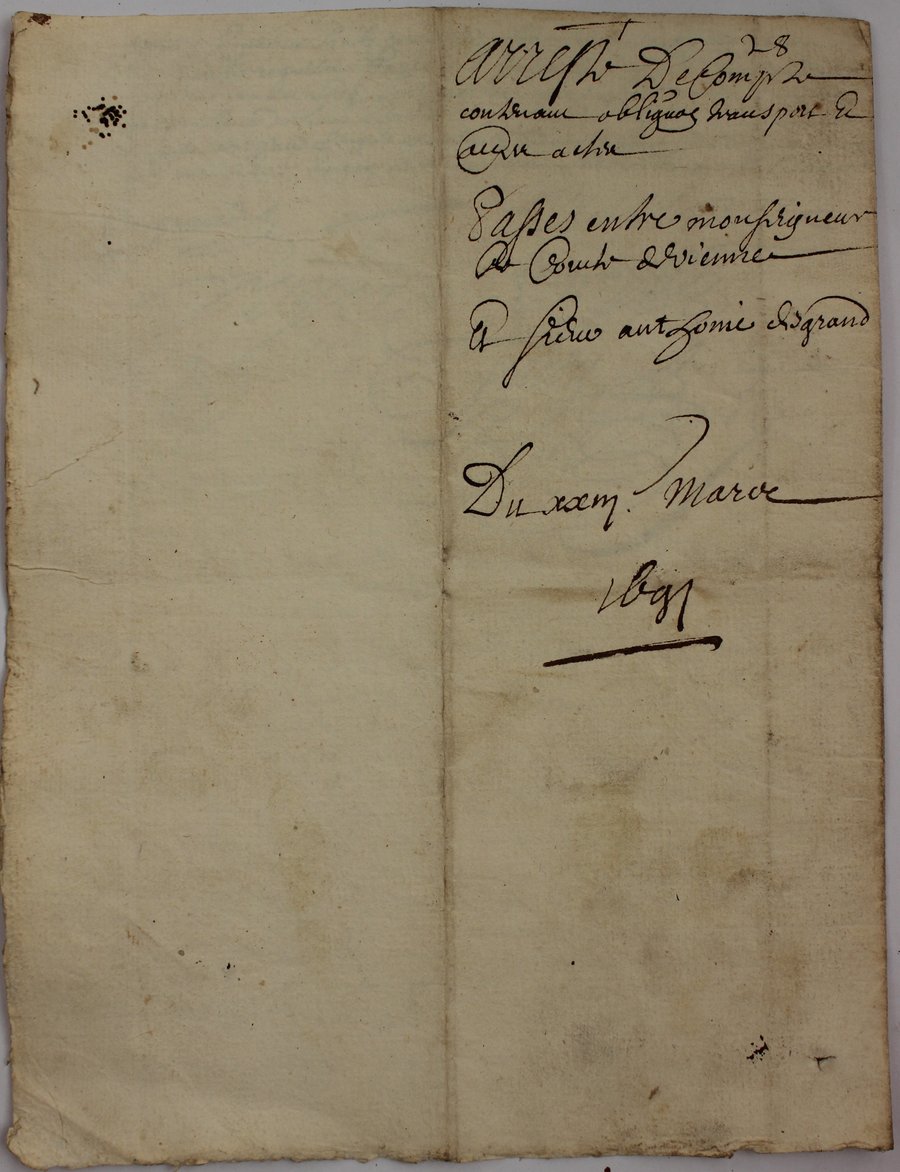 28
Arresté De Compte
contenant obligãon transport Et
autre actes
Passes entre monseigneur
le Comte de vienne
Et sieur anthoine legrand
Du xxiij. Mars
1691